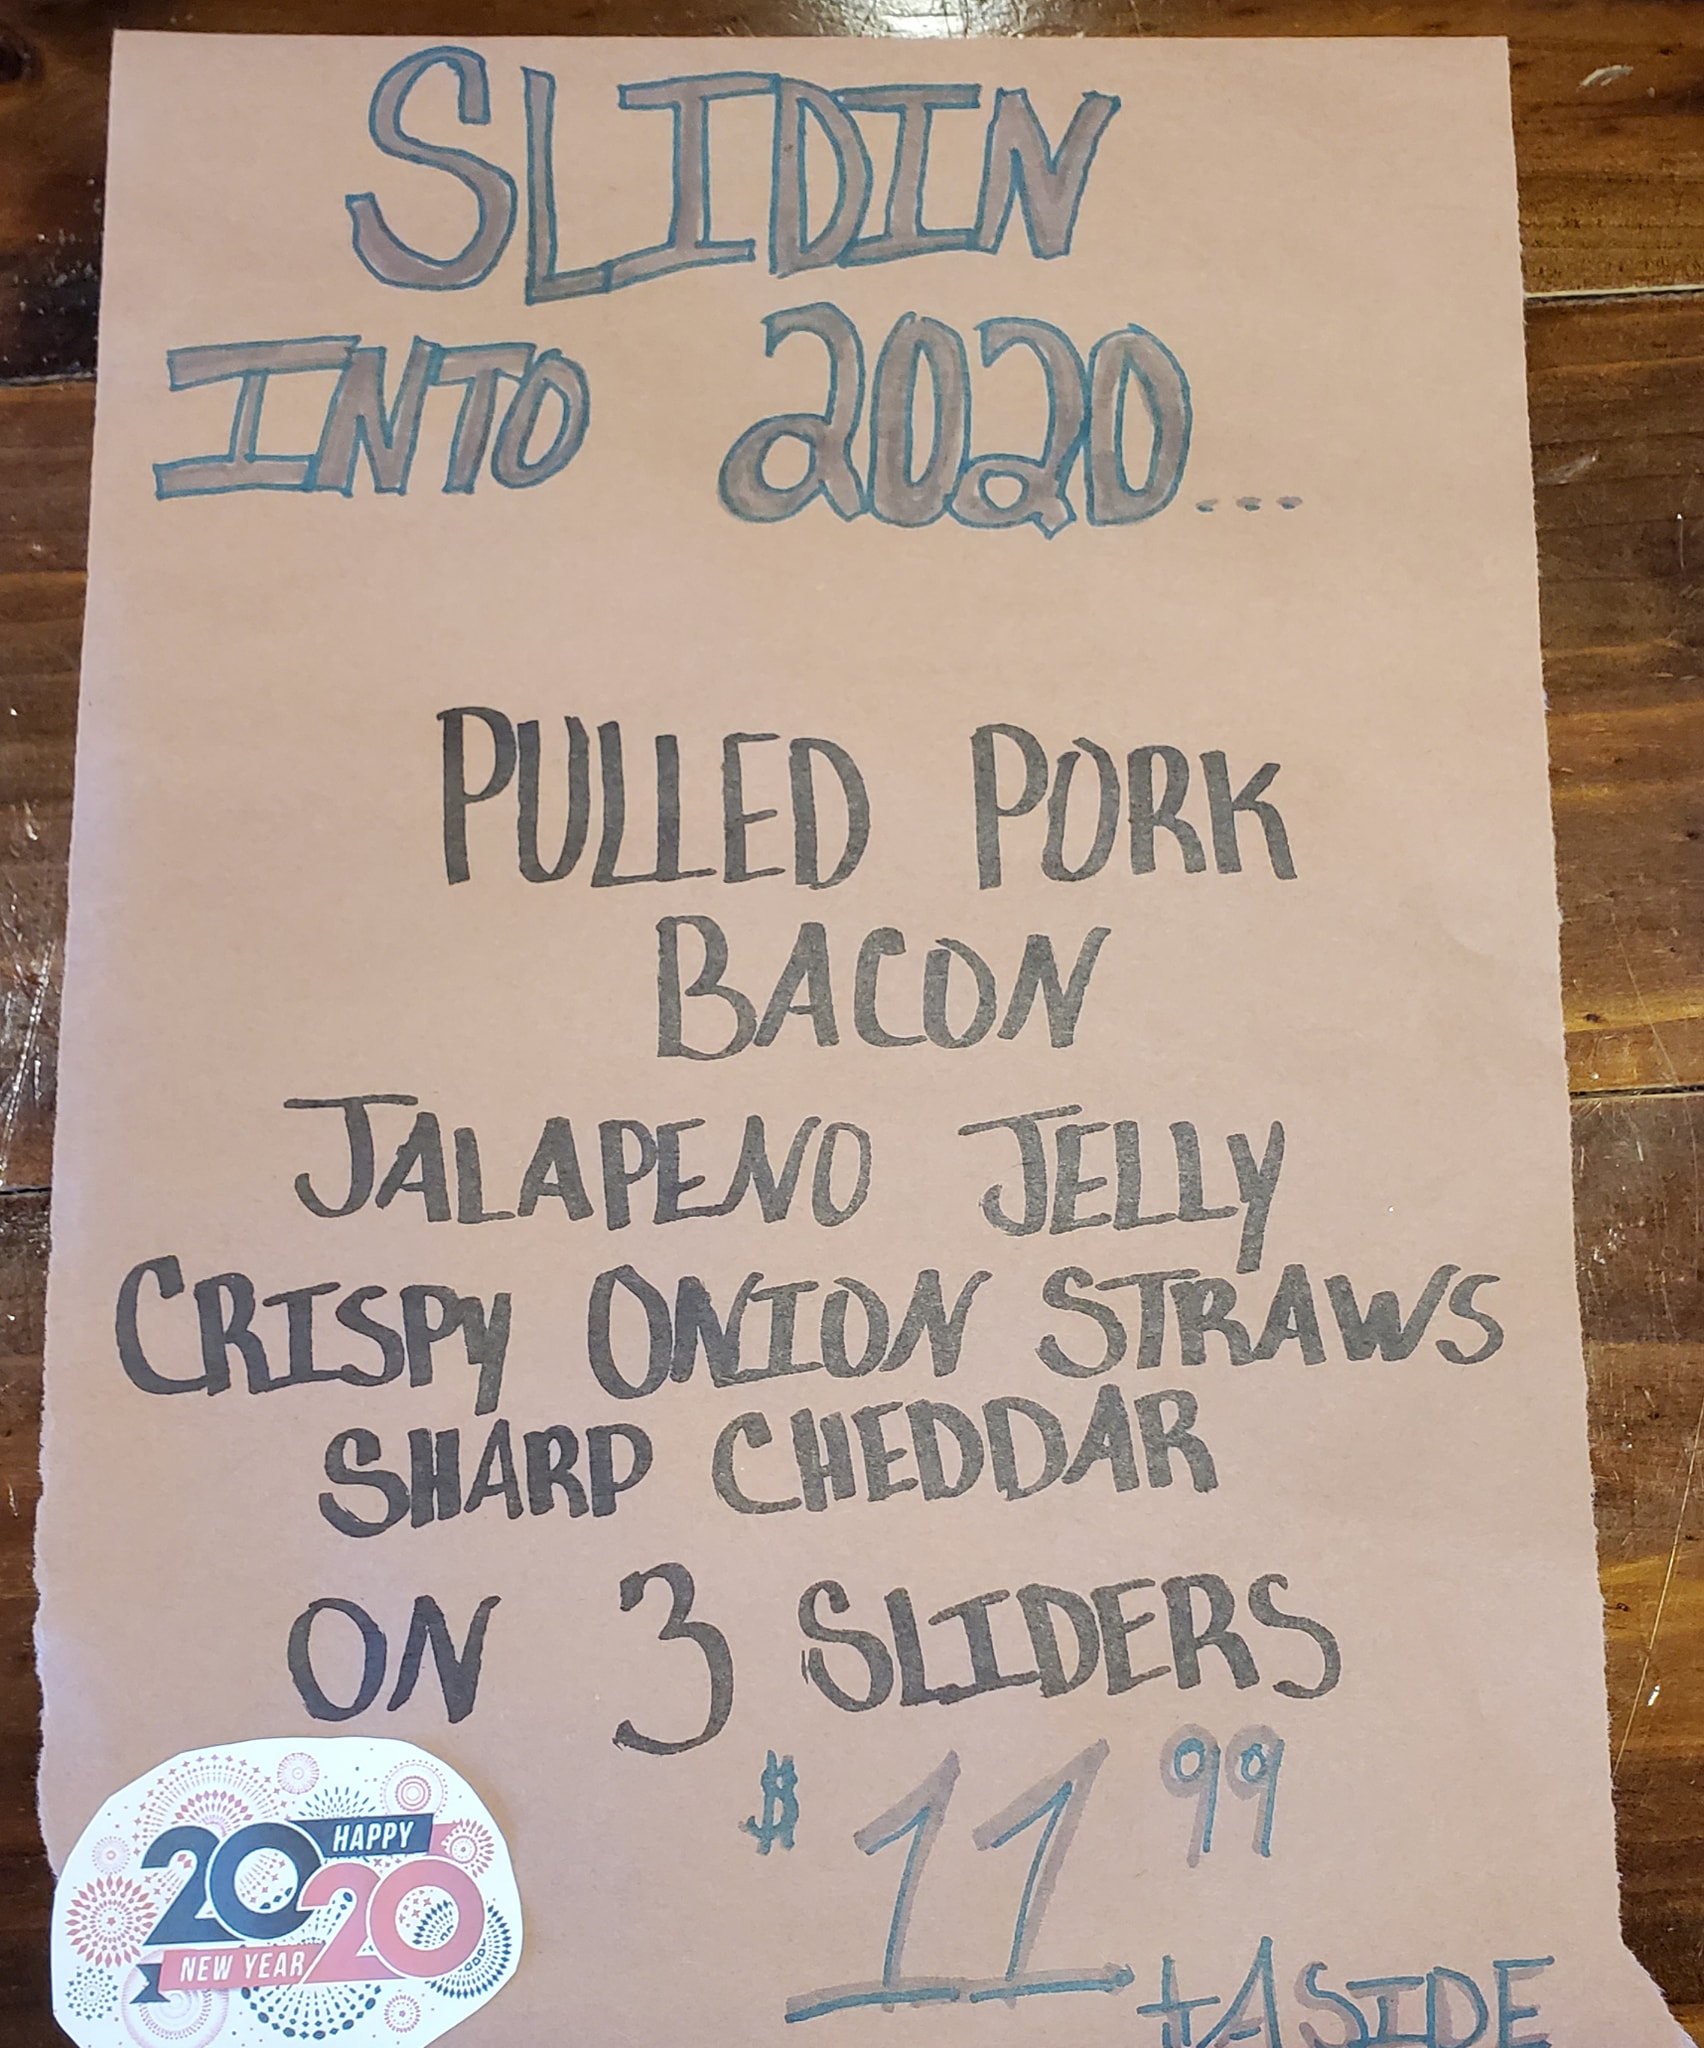 SLIDIN
INTO 2020...
PULLED PORK
BACON
JALAPENO JELLY
CRISPY ONION STRAWS
SHARP CHEDDAR
ON 3 SLIDERS
$11 99
+ A SIDE
HAPPY
2020
NEW YEAR